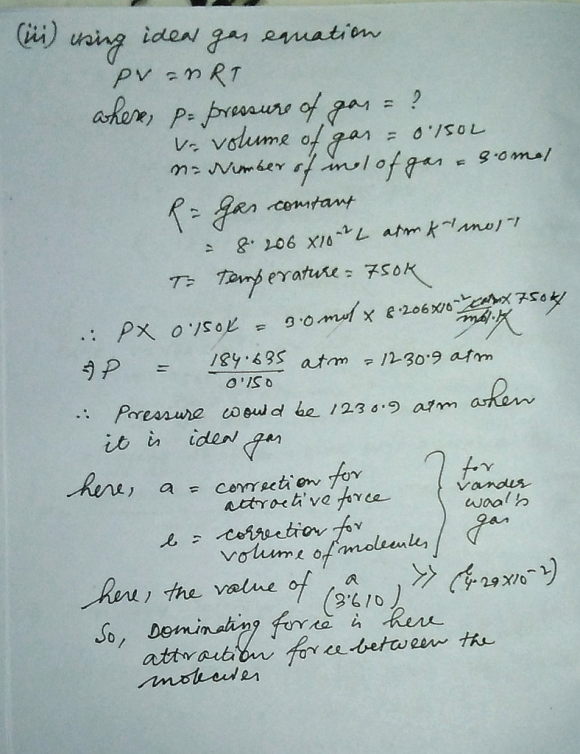 (iii) using ideal gas equation
PV = nRT
where, P = pressure of gas = ?
V = volume of gas = 0.150L
n = Number of mol of gas = 3.0mol
R = gas constant
= 8.206 X10⁻² L atm K⁻¹ mol⁻¹
T = Temperature = 750K
∴ PX 0.150L = 3.0 mol X 8.206X10⁻² L atm X 750K / mol.K
⇒ P = 184.635 / 0.150 atm = 1230.9 atm
∴ Pressure would be 1230.9 atm when
it is ideal gas
here, a = correction for
attractive force
b = correction for
volume of molecules
} for
vander
waal's
gas
here, the value of a (3.610) >> b (4.29X10⁻²)
So, Dominating force is here
attraction force between the
molecules